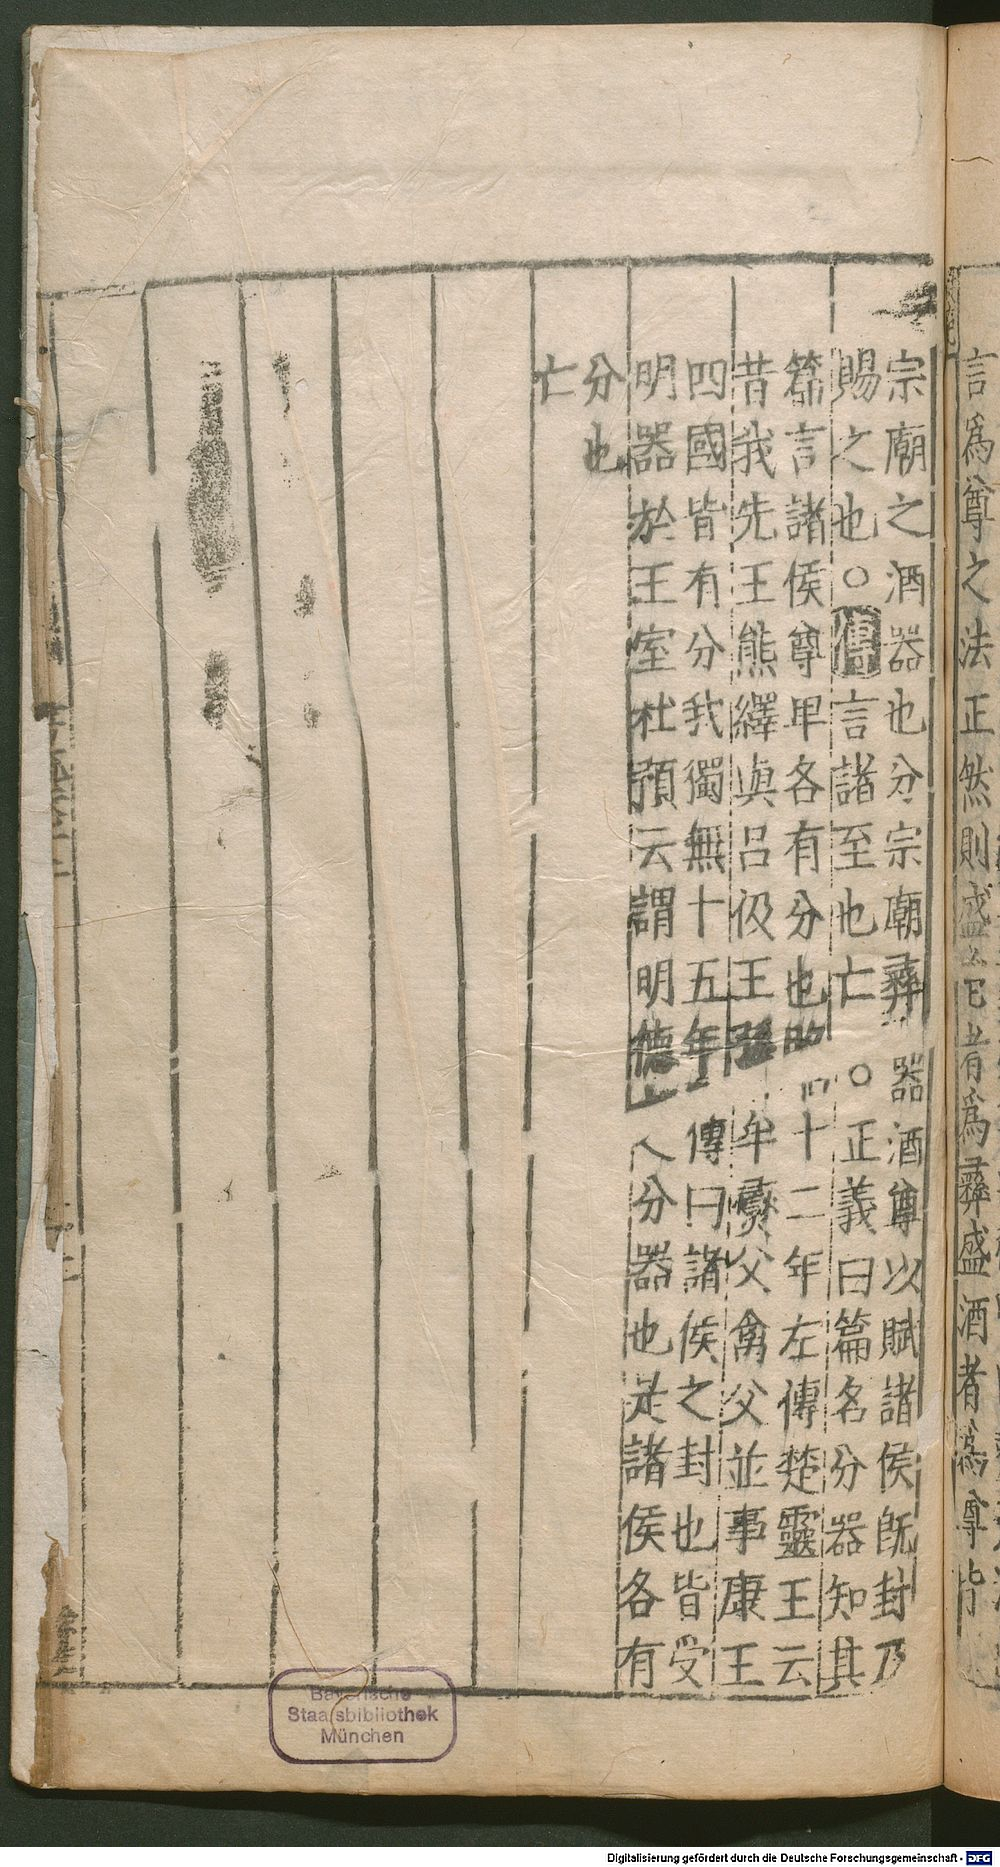 言爲尊之法正然則盛者爲彝盛酒者爲尊皆
宗廟之酒器也分宗廟彝器酒尊以賦諸侯旣封乃
賜之也○傳言諸至也亡○正義曰篇名分器知其
篇言諸侯尊卑各有分也昭十二年左傳楚靈王云
昔我先王熊繹與呂伋王孫牟燮父禽父並事康王
四國皆有分我獨無十五年傳曰諸侯之封也皆受
明器於王室杜預云謂明德之分器也是諸侯各有
分也
亡
Bayerische
Staatsbibliothek
München
Digitalisierung gefördert durch die Deutsche Forschungsgemeinschaft - DFG